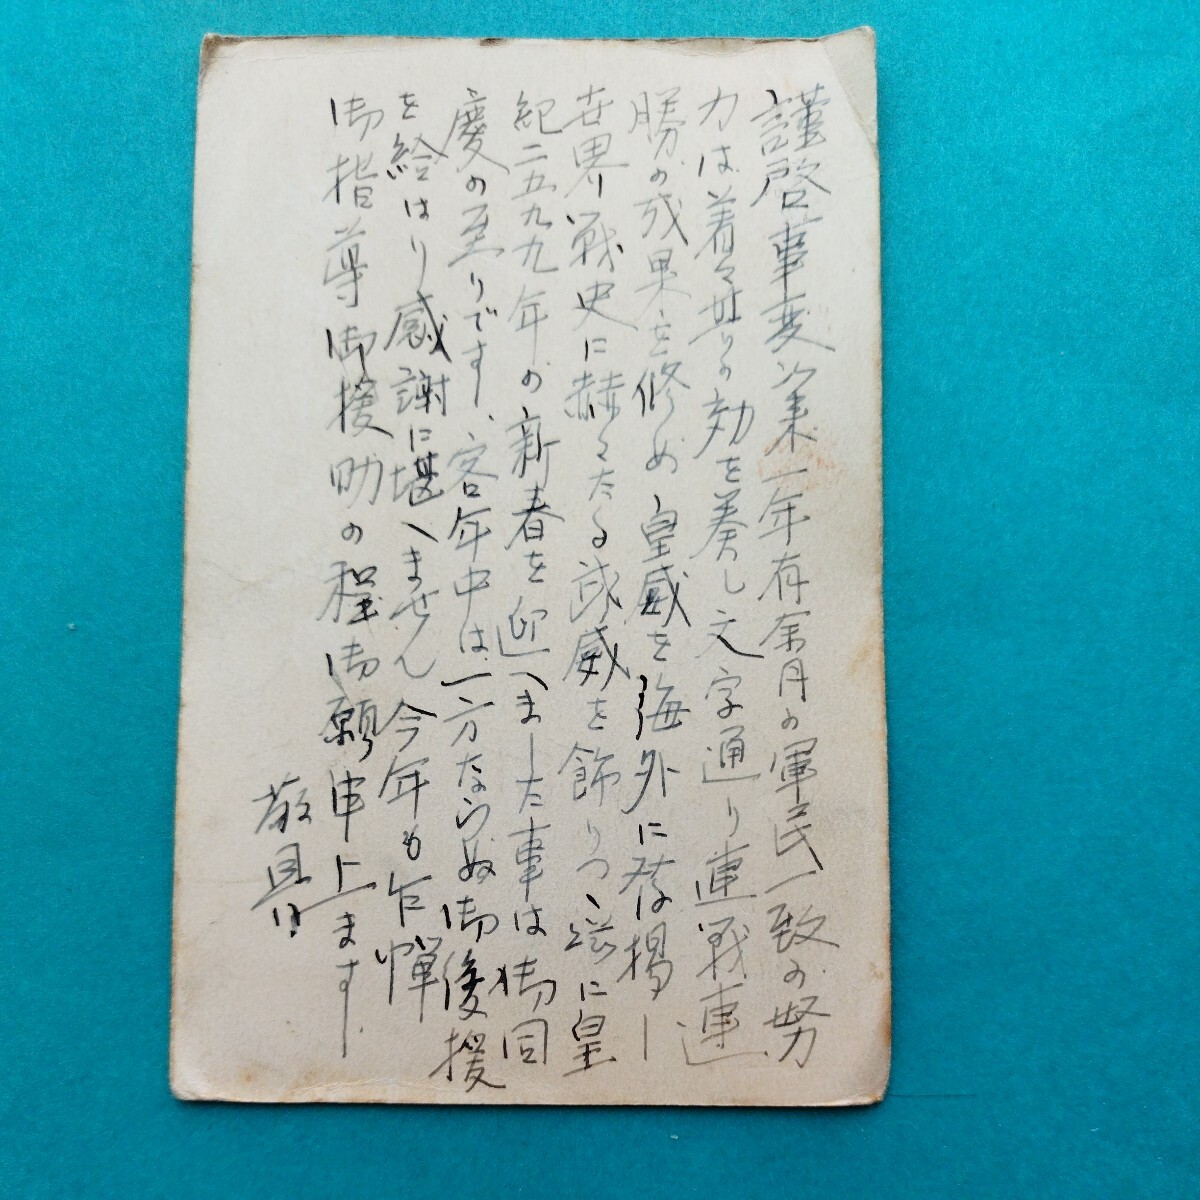 謹啓事変以来一年有余月の軍民一致の努
力は着々其の効を奏し文字通り連戦連
勝の成果を修め皇威を海外に発揚し
世界戦史に赫々たる武威を飾りつゝ茲に皇
紀二五九九年の新春を迎へました事は御同
慶の至りです、客年中は一方ならぬ御後援
を給はり感謝に堪へません今年も乍憚
御指導御援助の程御願申上ます
敬具